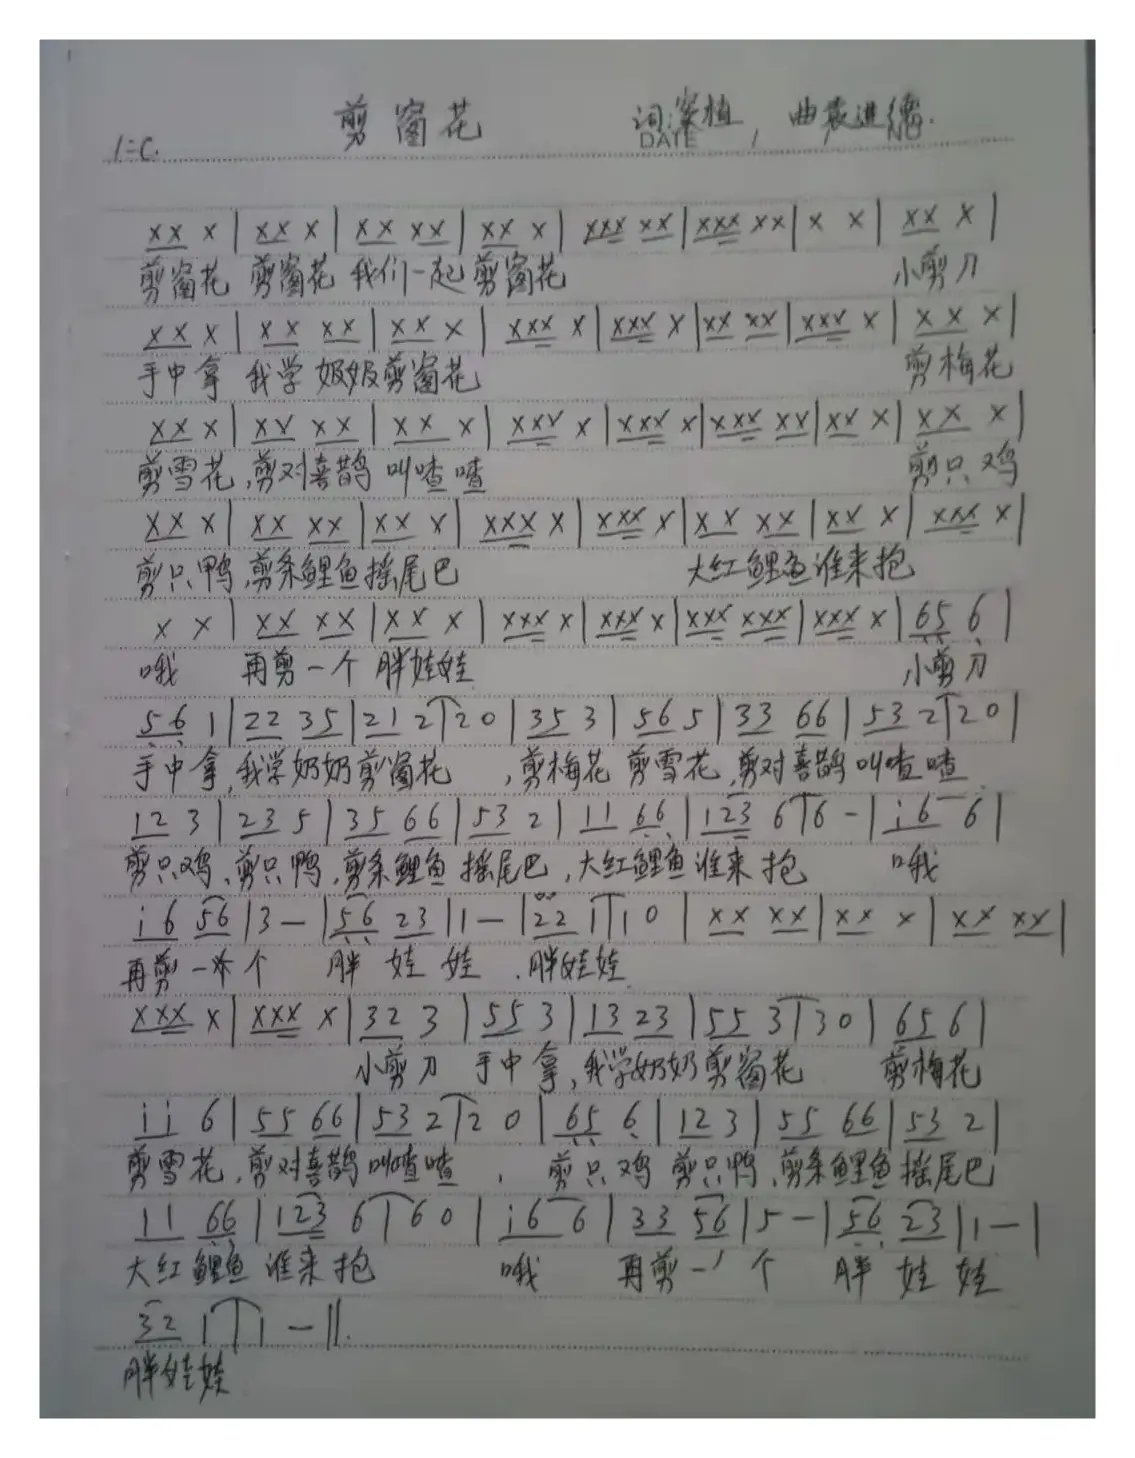 剪窗花 词:梁植, 曲袁进德.
1=C. DATE
xx x | xx x | xx xx | xx x | xxx xx | xxx xx | x x | xx x |
剪窗花 剪窗花 我们一起剪窗花 小剪刀
xx x | xx xx | xx x | xxx x | xxx x | xx xx | xxx x | xx x |
手中拿 我学奶奶剪窗花 剪梅花
xx x | xx xx | xx x | xxx x | xxx x | xxx xx | xx x | xx x |
剪雪花,剪对喜鹊叫喳喳 剪只鸡
xx x | xx xx | xx x | xxx x | xxx x | xx xx | xx x | xxx x |
剪只鸭,剪条鲤鱼摇尾巴 大红鲤鱼谁来抱
x x | xx xx | xx x | xxx x | xxx x | xxx xxx | xxx x | 65 6 |
哦 再剪一个胖娃娃 小剪刀
56 1 | 22 35 | 21 2 | 20 | 35 3 | 56 5 | 33 66 | 53 2 | 20 |
手中拿,我学奶奶剪窗花 ,剪梅花 剪雪花,剪对喜鹊叫喳喳
12 3 | 23 5 | 35 66 | 53 2 | 11 66 | 123 6 | 6 - | i6 6 |
剪只鸡,剪只鸭,剪条鲤鱼摇尾巴,大红鲤鱼谁来抱 哦
i6 56 | 3 - | 56 23 | 1 - | 22 1 | 1 0 | xx xx | xx x | xx xx |
再剪一个 胖娃娃 .胖娃娃
xxx x | xxx x | 32 3 | 55 3 | 13 23 | 55 3 | 30 | 65 6 |
小剪刀 手中拿,我学奶奶剪窗花 剪梅花
ii 6 | 55 66 | 53 2 | 2 0 | 65 6 | 12 3 | 55 66 | 53 2 |
剪雪花,剪对喜鹊叫喳喳 , 剪只鸡 剪只鸭,剪条鲤鱼摇尾巴
11 66 | 123 6 | 60 | i6 6 | 33 56 | 5 - | 56 23 | 1 - |
大红鲤鱼谁来抱 哦 再剪一个 胖娃娃
32 1 | 1 - ‖.
胖娃娃